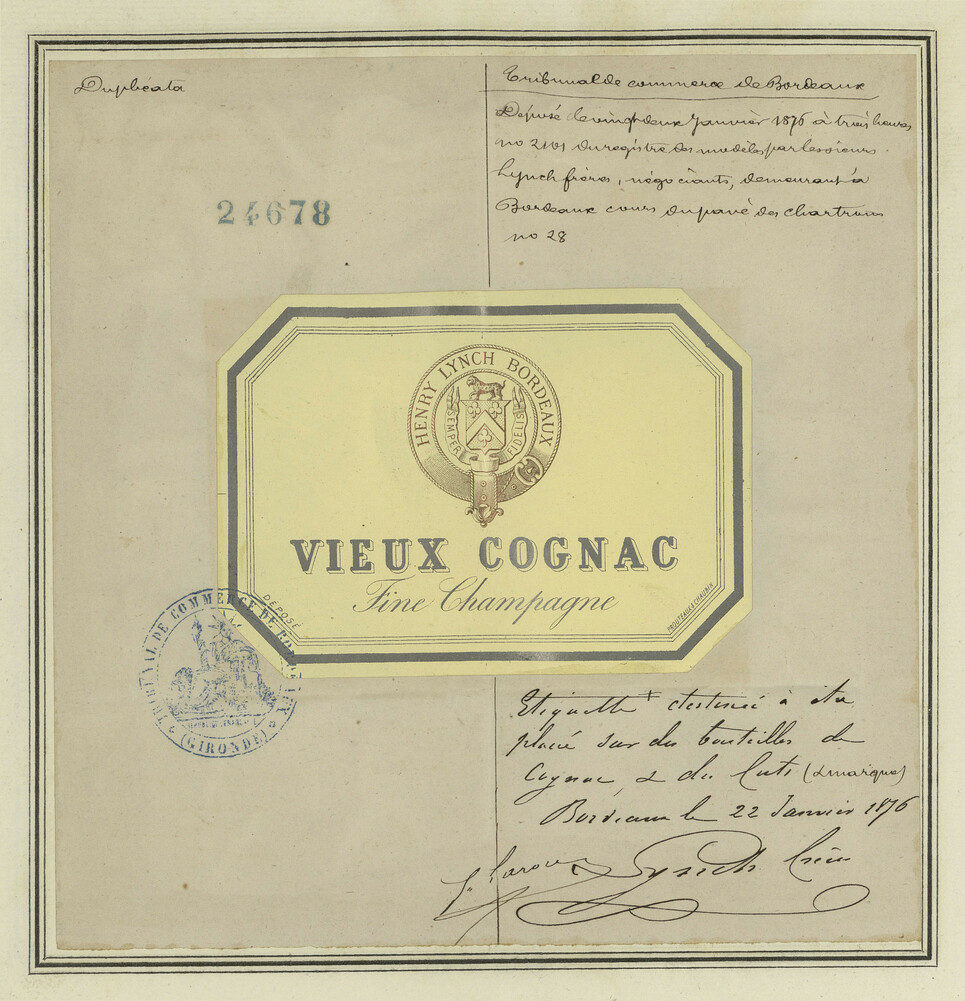 Duplicata
24678
Tribunal de commerce de Bordeaux
Déposé le vingt deux Janvier 1876 à trois heures
no 2101 du registre des modèles par les sieurs
Lynch frères, négociants, demeurant à
Bordeaux cours du pavé des chartrons
no 28
HENRY LYNCH BORDEAUX
SEMPER FIDELIS
VIEUX COGNAC
Fine Champagne
DÉPOSÉ
TRIBUNAL DE COMMERCE DE BORDEAUX
(GIRONDE)
Etiquette destinée à être
placé sur des bouteilles de
Cognac, & des futs (2 marques)
Bordeaux le 22 Janvier 1876
Lynch frères